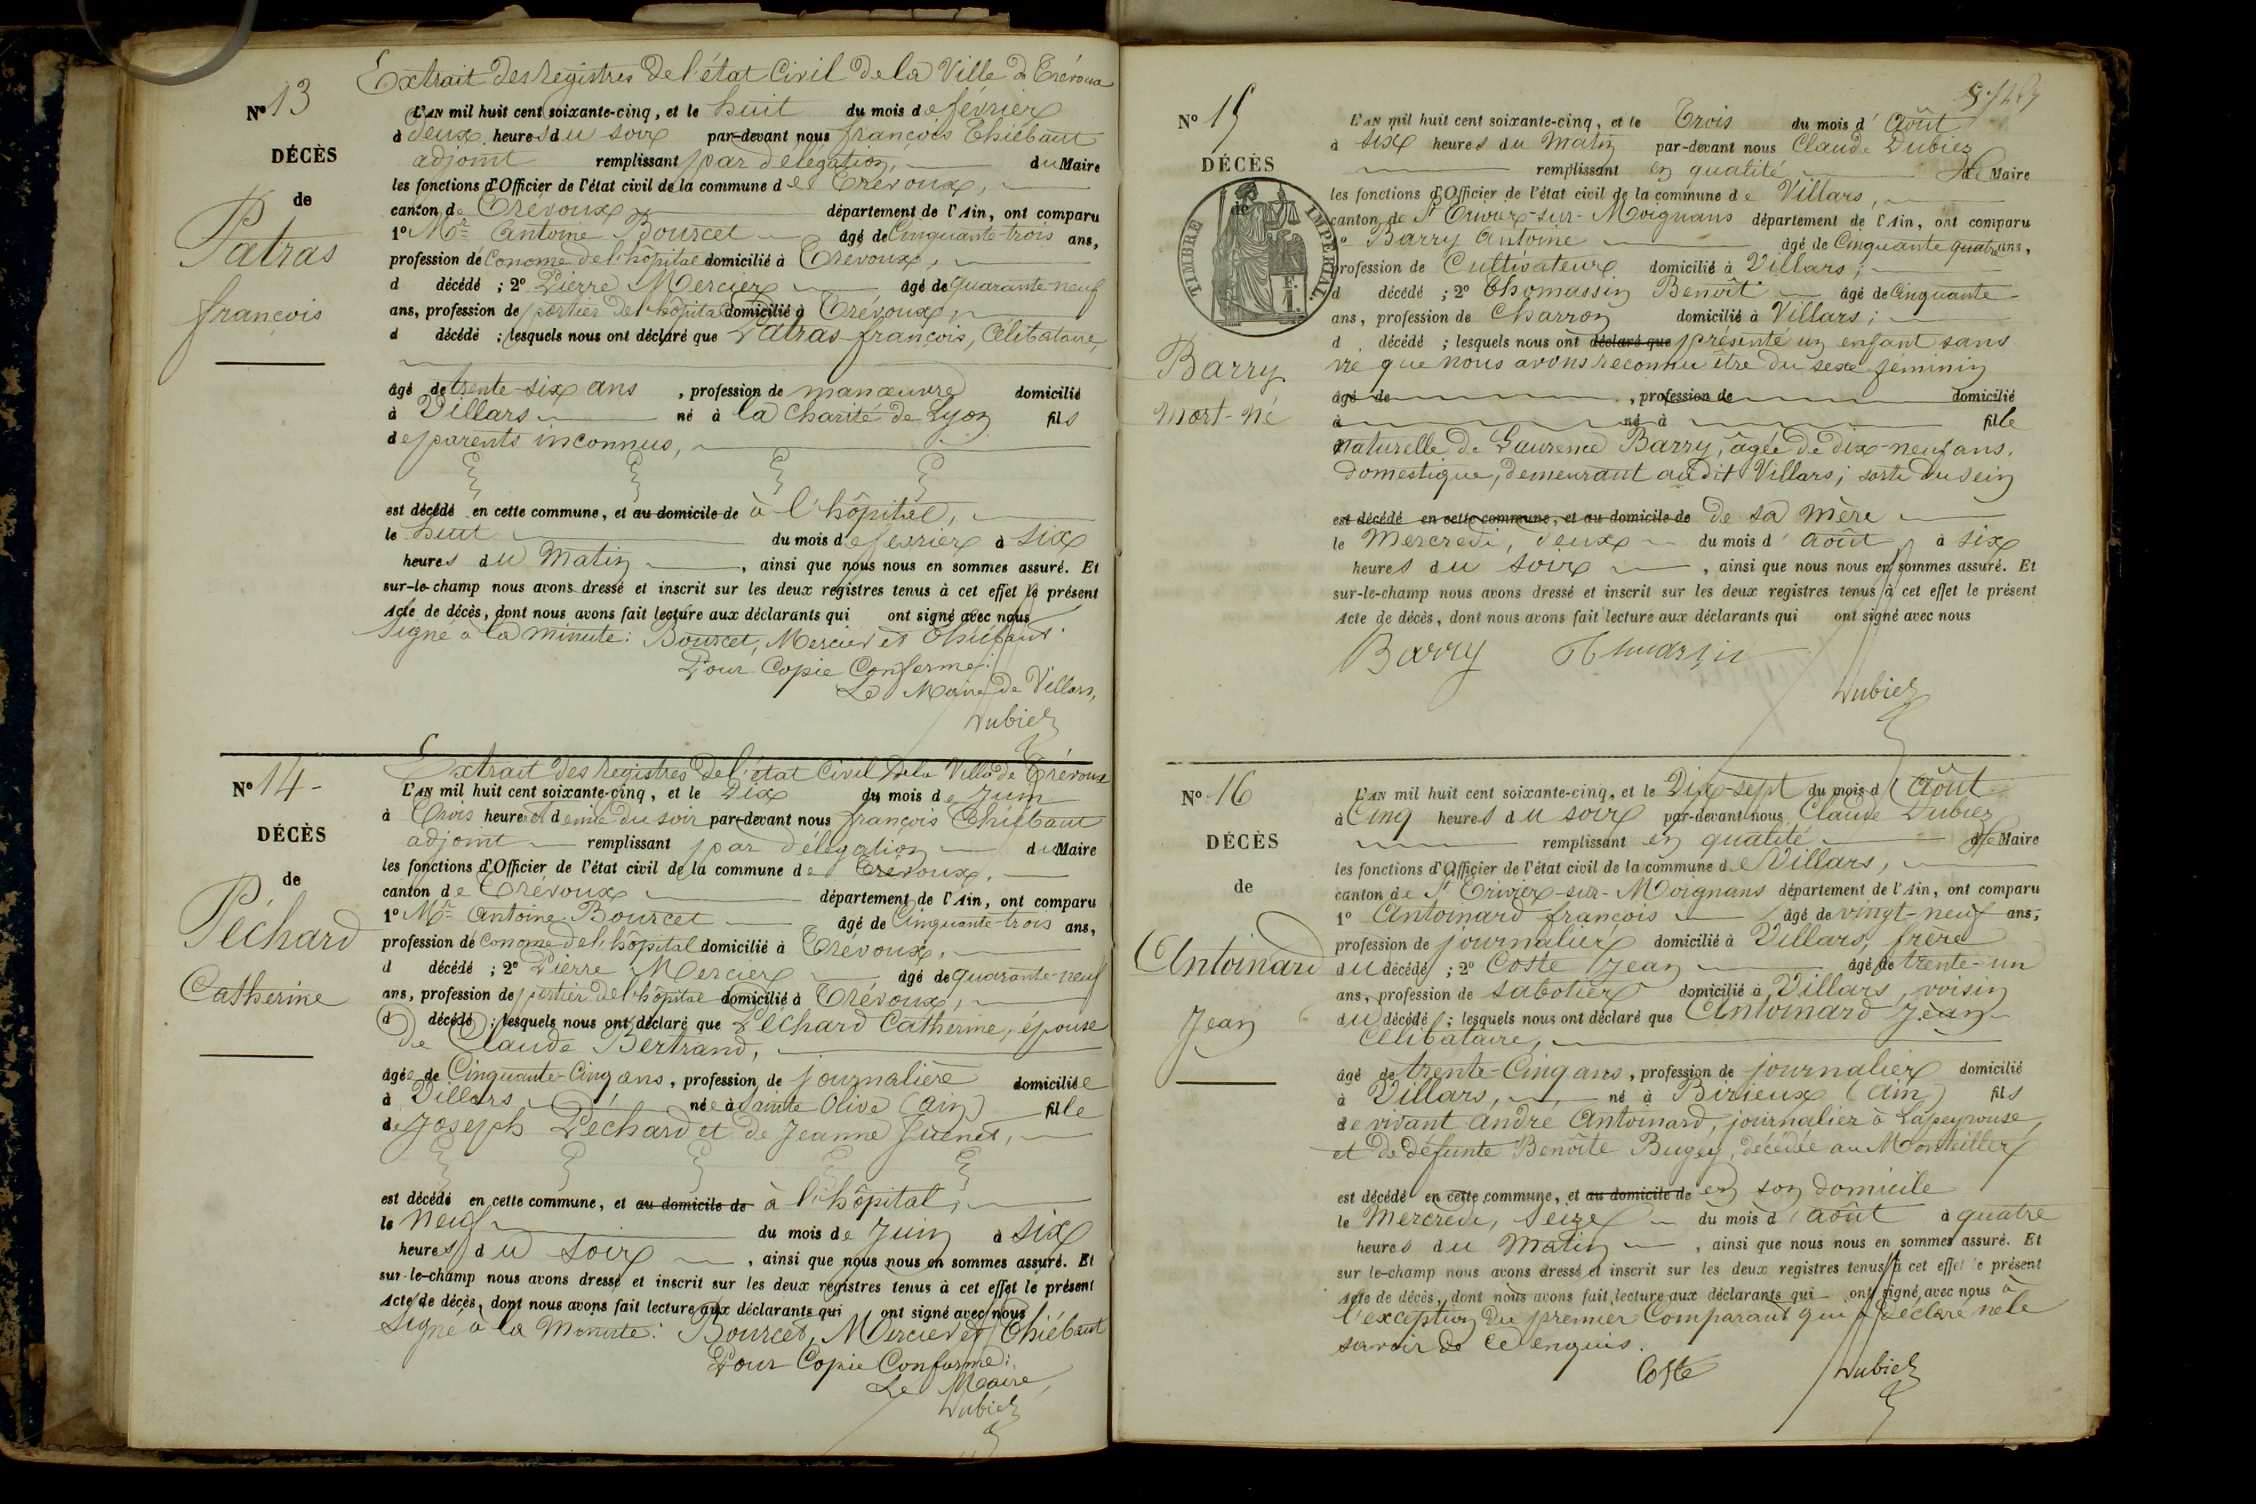 Extrait des Registres de l'état Civil de la Ville de Trévoux
N° 13
L'AN mil huit cent soixante-cinq, et le huit du mois de février
à deux heures du soir par-devant nous françois Thiébaut
DÉCÈS
adjoint remplissant par délégation, du Maire
les fonctions d'Officier de l'état civil de la commune de Trévoux,
de
canton de Trévoux département de l'Ain, ont comparu
Patras
1° Mr Antoine Bourcet âgé de Cinquante-trois ans,
profession d'économe de l'hôpital domicilié à Trévoux,
d décédé ; 2° Pierre Mercier âgé de quarante-neuf
françois
ans, profession de portier de l'hôpital domicilié à Trévoux,
d décédé ; lesquels nous ont déclaré que Patras françois, Célibataire,
âgé de trente-six ans, profession de manœuvre domicilié
à Villars né à la Charité de Lyon fils
de parents inconnus,
est décédé en cette commune, et au domicile de à l'hôpital,
le huit du mois de février à six
heures du matin, ainsi que nous nous en sommes assuré. Et
sur-le-champ nous avons dressé et inscrit sur les deux registres tenus à cet effet le présent
Acte de décès, dont nous avons fait lecture aux déclarants qui ont signé avec nous
Signé à la minute: Bourcet, Mercier et Thiébaut.
Pour Copie Conforme:
Le Maire de Villars,
Dubiez
Extrait des Registres de l'état Civil de la Ville de Trévoux
N° 14
L'AN mil huit cent soixante-cinq, et le Dix du mois de Juin
à Trois heures et demie du soir par-devant nous françois Thiébaut
DÉCÈS
adjoint remplissant par délégation du Maire
les fonctions d'Officier de l'état civil de la commune de Trévoux,
de
canton de Trévoux département de l'Ain, ont comparu
Péchard
1° Mr Antoine Bourcet âgé de Cinquante-trois ans,
profession d'économe de l'hôpital domicilié à Trévoux,
d décédé ; 2° Pierre Mercier âgé de quarante-neuf
Catherine
ans, profession de portier de l'hôpital domicilié à Trévoux,
d décédé ; lesquels nous ont déclaré que Péchard Catherine, épouse
de Claude Bertrand,
âgée de Cinquante-Cinq ans, profession de journalière domiciliée
à Villars, née à Sainte Olive (Ain) fille
de Joseph Péchard et de Jeanne
est décédé en cette commune, et au domicile de à l'hôpital,
le neuf du mois de Juin à six
heures du soir, ainsi que nous nous en sommes assuré. Et
sur-le-champ nous avons dressé et inscrit sur les deux registres tenus à cet effet le présent
Acte de décès, dont nous avons fait lecture aux déclarants qui ont signé avec nous
Signé à la Minute: Bourcet, Mercier et Thiébaut
Pour Copie Conforme:
Le Maire,
Dubiez
N° 15
L'AN mil huit cent soixante-cinq, et le Trois du mois d'Août
à six heures du matin par-devant nous Claude Dubiez
DÉCÈS
remplissant en qualité de Maire
les fonctions d'Officier de l'état civil de la commune de Villars,
de
TIMBRE IMPÉRIAL
canton de St Trivier-sur-Moignans département de l'Ain, ont comparu
1° Barry Antoine âgé de Cinquante quatre ans,
profession de Cultivateur domicilié à Villars;
d décédé ; 2° Thomassin Benoît âgé de Cinquante
ans, profession de Charron domicilié à Villars;
d décédé ; lesquels nous ont déclaré que présenté un enfant sans
Barry
vie que nous avons reconnu être du sexe féminin
âgé de, profession de domicilié
mort-né
à né à fille
naturelle de Laurence Barry, âgée de dix-neuf ans,
domestique, demeurant audit Villars; sorti du sein
est décédé en cette commune, et au domicile de de sa mère
le Mercredi, deux du mois d'août à six
heures du soir, ainsi que nous nous en sommes assuré. Et
sur-le-champ nous avons dressé et inscrit sur les deux registres tenus à cet effet le présent
Acte de décès, dont nous avons fait lecture aux déclarants qui ont signé avec nous
Barry
Dubiez
N° 16
L'AN mil huit cent soixante-cinq, et le Dix-sept du mois d'Août
à Cinq heures du soir par-devant nous Claude Dubiez
DÉCÈS
remplissant en qualité de Maire
les fonctions d'Officier de l'état civil de la commune de Villars,
de
canton de St Trivier-sur-Moignans département de l'Ain, ont comparu
1° Antoinard françois âgé de vingt-neuf ans,
Antoinard
profession de journalier domicilié à Villars, frère
du décédé ; 2° Coste Jean âgé de trente-un
ans, profession de sabotier domicilié à Villars, voisin
Jean
du décédé ; lesquels nous ont déclaré que Antoinard Jean
Célibataire,
âgé de trente-Cinq ans, profession de journalier domicilié
à Villars, né à Birieux (Ain) fils
de vivant André Antoinard, journalier à Lapeyrouse,
et de défunte Benoîte Bugey, décédée au Montellier
est décédé en cette commune, et au domicile de en son domicile
le Mercredi, Seize du mois d'août à quatre
heures du Matin, ainsi que nous nous en sommes assuré. Et
sur-le-champ nous avons dressé et inscrit sur les deux registres tenus à cet effet le présent
Acte de décès, dont nous avons fait lecture aux déclarants qui ont signé avec nous à
l'exception du premier Comparant qui a déclaré ne le
savoir de ce enquis.
Coste
Dubiez